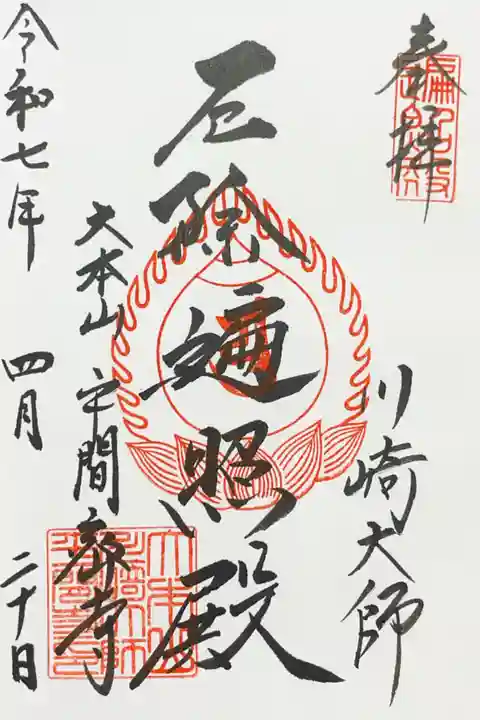 奉拝
川崎大師
厄除遍照殿
大本山 平間 寺
令和七年 四月 二十日